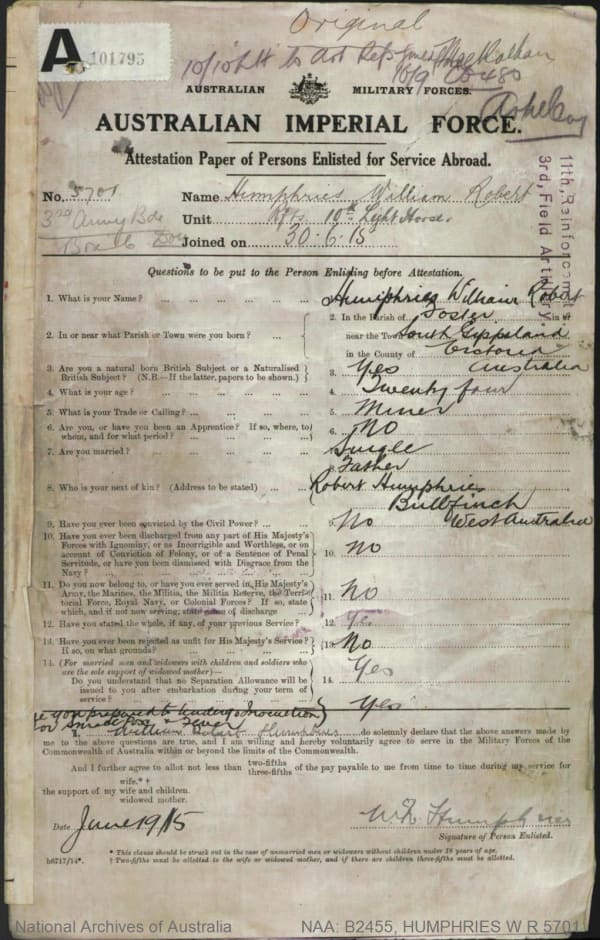 Original
A
101795
10/10 LH to Art Rfts
AUSTRALIAN MILITARY FORCES.
AUSTRALIAN IMPERIAL FORCE.
Attestation Paper of Persons Enlisted for Service Abroad.
11th, Reinforcement
3rd, Field Artillery
No. 5701 Name Humphries William Robert
3rd Army Bde Unit Rfts 10th Light Horse.
Joined on 30.6.15
Questions to be put to the Person Enlisting before Attestation.
1. What is your Name? ... 1. Humphries William Robert
2. In or near what Parish or Town were you born? ... 2. In the Parish of Foster in or
near the Town South Gippsland
in the County of Victoria
Australia
3. Are you a natural born British Subject or a Naturalised British Subject? (N.B.—If the latter, papers to be shown.) 3. Yes
4. What is your age? ... 4. Twenty four
5. What is your Trade or Calling? ... 5. Miner
6. Are you, or have you been an Apprentice? If so, where, to whom, and for what period? ... 6. No
7. Are you married? ... 7. Single
8. Who is your next of kin? (Address to be stated) ... 8. Father
Robert Humphries
Bullfinch
West Australia
9. Have you ever been convicted by the Civil Power? ... 9. No
10. Have you ever been discharged from any part of His Majesty's
Forces with Ignominy, or as Incorrigible and Worthless, or on
account of Conviction of Felony, or of a Sentence of Penal
Servitude, or have you been dismissed with Disgrace from the
Navy? ... 10. No
11. Do you now belong to, or have you ever served in, His Majesty's
Army, the Marines, the Militia, the Militia Reserve, the Territorial
Force, Royal Navy, or Colonial Forces? If so, state
which, and if not now serving, state cause of discharge 11. No
12. Have you stated the whole, if any, of your previous Service? 12. Yes
13. Have you ever been rejected as unfit for His Majesty's Service?
If so, on what grounds? 13. No
14. (For married men and widowers with children and soldiers who
are the sole support of widowed mother)—
Do you understand that no Separation Allowance will be
issued to you after embarkation during your term of
service? ... 14. Yes
you prepared to undergo Inoculation
for Small Pox & Fever Yes
I, William Robert Humphries do solemnly declare that the above answers made by
me to the above questions are true, and I am willing and hereby voluntarily agree to serve in the Military Forces of the
Commonwealth of Australia within or beyond the limits of the Commonwealth.
And I further agree to allot not less than two-fifths three-fifths of the pay payable to me from time to time during my service for
wife.* †
the support of my wife and children.
widowed mother.
Date June 19/15 W R Humphries
Signature of Person Enlisted.
* This clause should be struck out in the case of unmarried men or widowers without children under 18 years of age.
b6717/14*. † Two-fifths must be allotted to the wife or widowed mother, and if there are children three-fifths must be allotted.
National Archives of Australia NAA: B2455, HUMPHRIES W R 5701